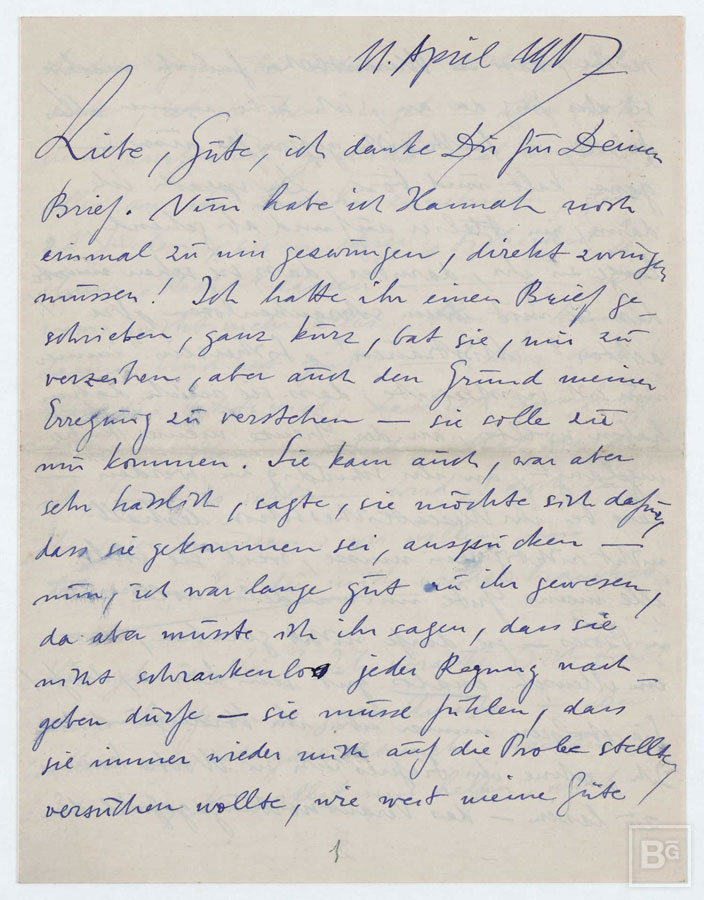 11. April 1917
Liebe, Gute, ich danke Dir für Deinen
Brief. Nun habe ich Hannah noch
einmal zu mir gezwungen, direkt
müssen! Ich hatte ihr einen Brief ge-
schrieben, ganz kurz, bat sie, mir zu
verzeihen, aber auch den Grund meiner
Erregung zu verstehen — sie solle zu
mir kommen. Sie kam auch, war aber
sehr hässlich, sagte, sie möchte sich dafür,
dass sie gekommen sei, anspucken —
nun, ich war lange gut zu ihr gewesen,
da aber musste ich ihr sagen, dass sie
nicht schrankenlos jeder Regung nach-
geben dürfe — sie müsse fühlen, dass
sie immer wieder mich auf die Probe stellte,
versuchen wollte, wie weit meine Güte
1
BG